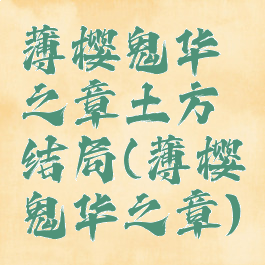 薄樱鬼华
之章土方
结局(薄樱
鬼华之章)